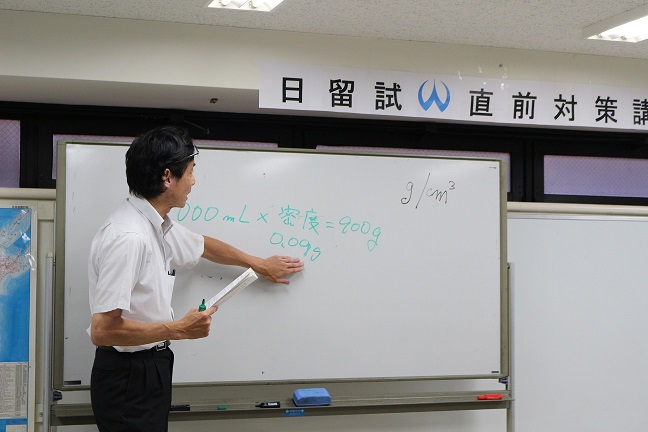 日留試 直前対策講
g/cm³
000mL × 密度 = 900g
0.09g